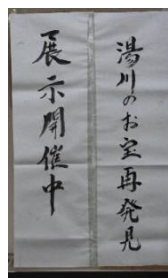 湯川のお宝再発見
展示開催中